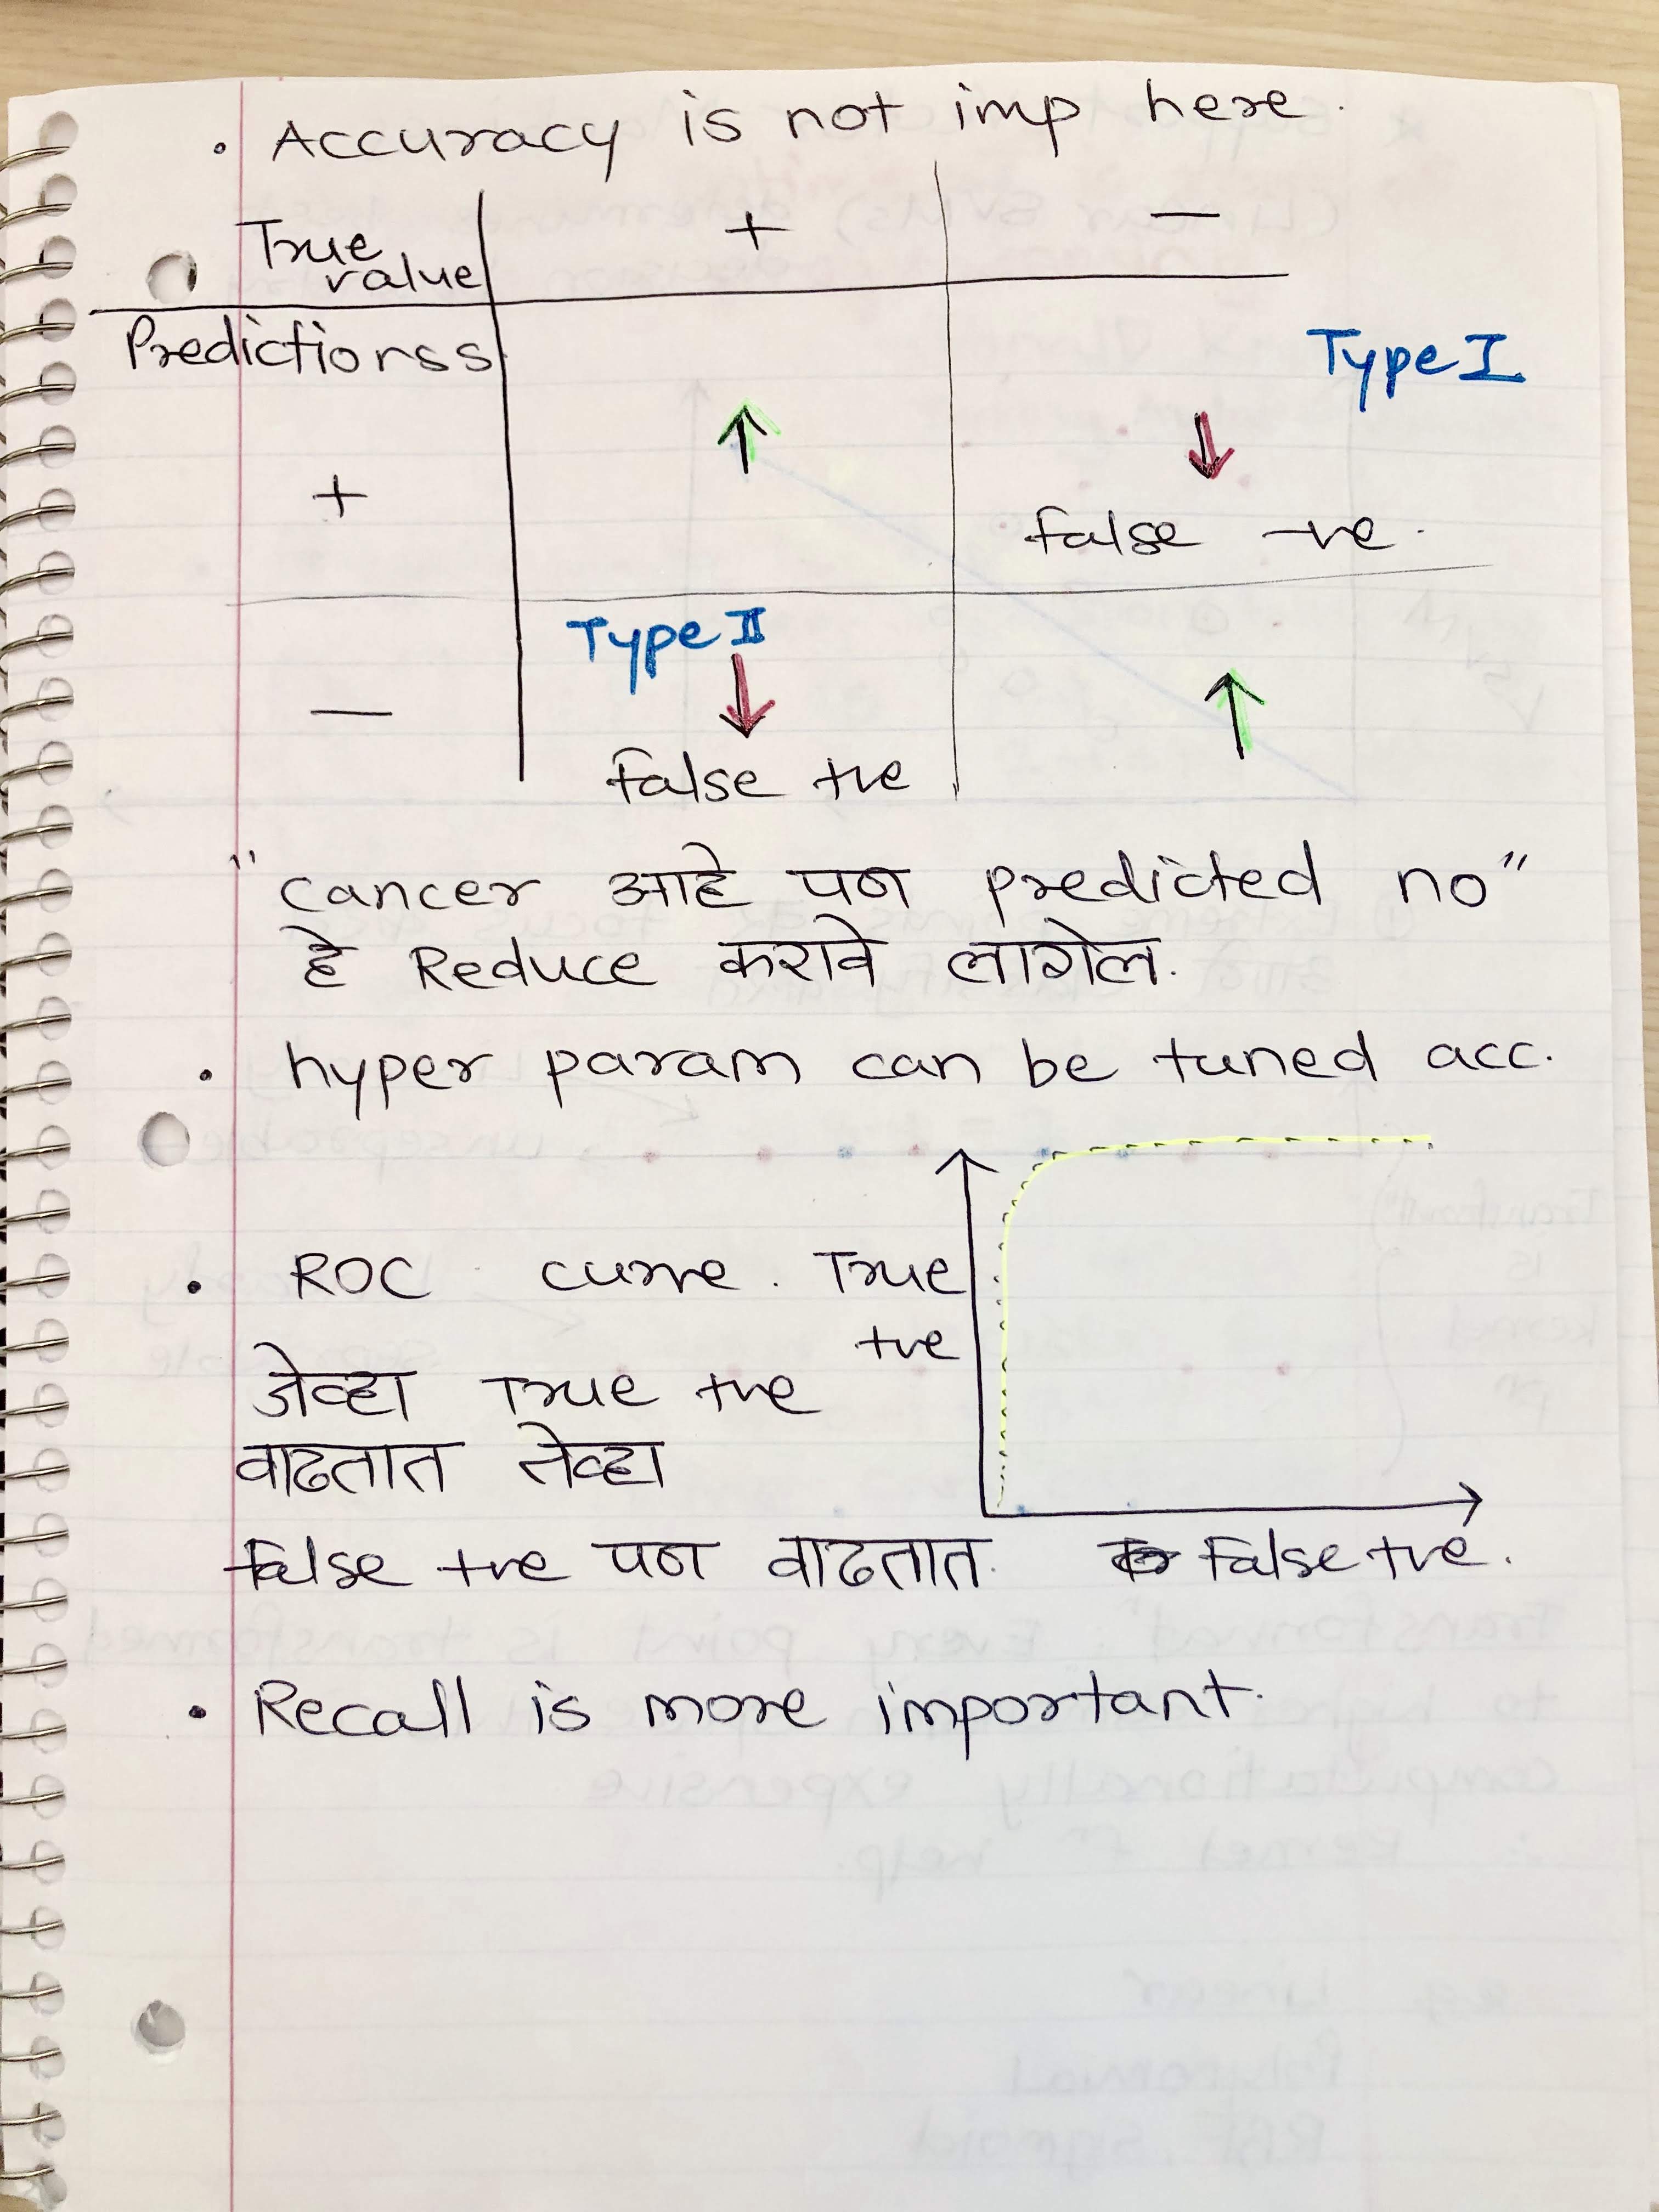 • Accuracy is not imp here.
True value + −
Predictionss
Type I
↑ ↓
+ False -ve.
Type II
↓ ↑
−
False +ve
"cancer आहे पण predicted no"
हे Reduce करावे लागेल.
• hyper param can be tuned acc.
• ROC curve. True
+ve
जेव्हा True +ve
वाढतात तेव्हा
False +ve पण वाढतात. False +ve.
• Recall is more important.